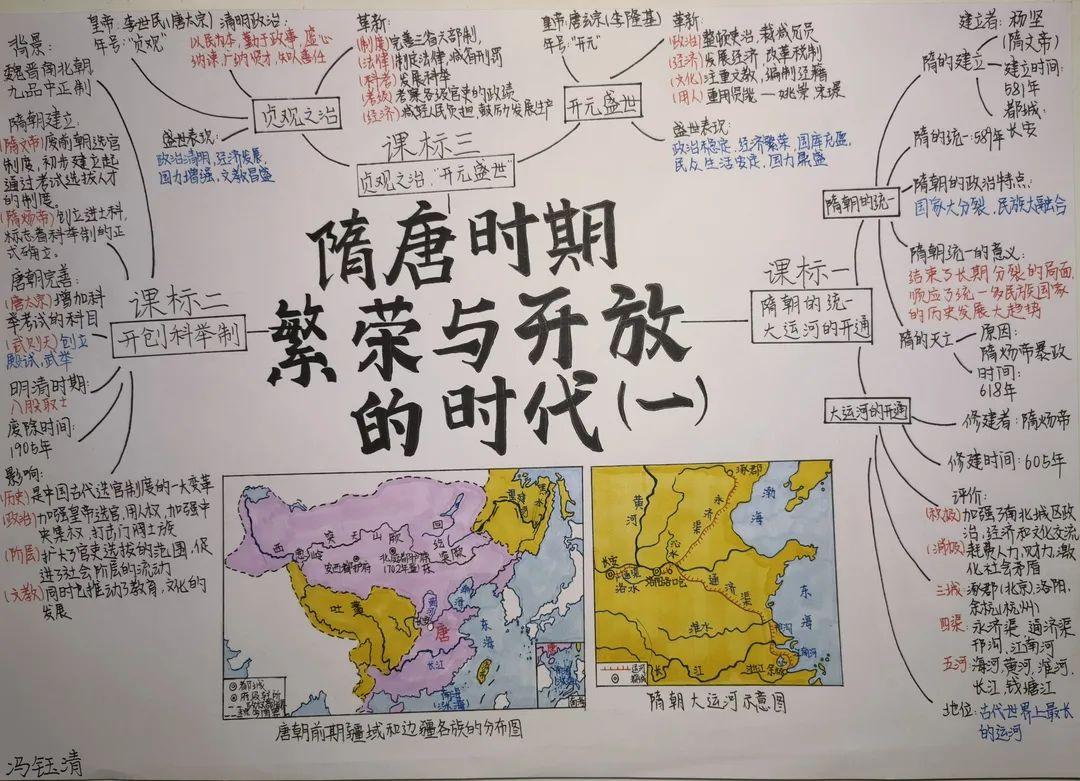 隋唐时期
繁荣与开放
的时代(一)
课标一
隋朝的统一
大运河的开通
隋朝的统一
隋的建立
建立者:杨坚
(隋文帝)
建立时间:
581年
都城:
长安
隋的统一:589年
隋朝的政治特点:
国家大分裂,民族大融合
隋朝统一的意义:
结束了长期分裂的局面,
顺应了统一多民族国家
的历史发展大趋势
隋的灭亡
原因:
隋炀帝暴政
时间:
618年
大运河的开通
修建者:隋炀帝
修建时间:605年
评价:
(积极)加强了南北城区政
治,经济和文化交流
(消极)耗费人力,财力,激
化社会矛盾
三城:涿郡(北京),洛阳,
余杭(杭州)
四渠:永济渠,通济渠
邗沟,江南河
五河:海河,黄河,淮河,
长江,钱塘江
地位:古代世界上最长
的运河
课标二
开创科举制
背景:
魏晋南北朝
九品中正制
隋朝建立:
(隋文帝)废前朝选官
制度,初步建立起
通过考试选拔人才
的制度。
(隋炀帝)创立进士科,
标志着科举制的正
式确立。
唐朝完善:
(唐太宗)增加科
举考试的科目
(武则天)创立
殿试,武举
明清时期:
八股取士
废除时间:
1905年
影响:
(历史)是中国古代选官制度的一大变革
(政治)加强皇帝选官,用人权,加强中
央集权,打击门阀士族
(阶层)扩大了官吏选拔的范围,促
进了社会阶层的流动
(文教)同时也推动了教育,文化的
发展
课标三
贞观之治,"开元盛世"
贞观之治
皇帝:李世民(唐太宗)
年号:"贞观"
清明政治:
以民为本,勤于政事,虚心
纳谏,广纳贤才,知人善任
革新:
(制度)完善三省六部制,
(法律)制定法律,减省刑罚
(科考)发展科举
(考级)考察各级官吏的政绩
(经济)减轻人民负担,鼓励发展生产
盛世表现:
政治清明,经济发展,
国力增强,文教昌盛
开元盛世
皇帝:唐玄宗(李隆基)
年号:"开元"
革新:
(政治)整顿吏治,裁减冗员
(经济)发展经济,改革税制
(文化)注重文教,编制经籍
(用人)重用贤能—姚崇,宋璟
盛世表现:
政治稳定,经济繁荣,国库充盈,
民众生活安定,国力鼎盛
西
突
天
山
厥
安西都护府
北庭都护府
(702年置)
回
纥
突厥
黑水
渤海
吐蕃
黄河
长安
唐
长江
东
海
南海
都城
唐朝前期疆域和边疆各族的分布图
涿郡
渤
海
黄
河
永
济
渠
沁水
长安
广通渠
洛水
洛阳
洛口
通
济
渠
淮水
邗沟
东
海
江南河
余杭
长
江
运河
隋朝大运河示意图
冯钰清